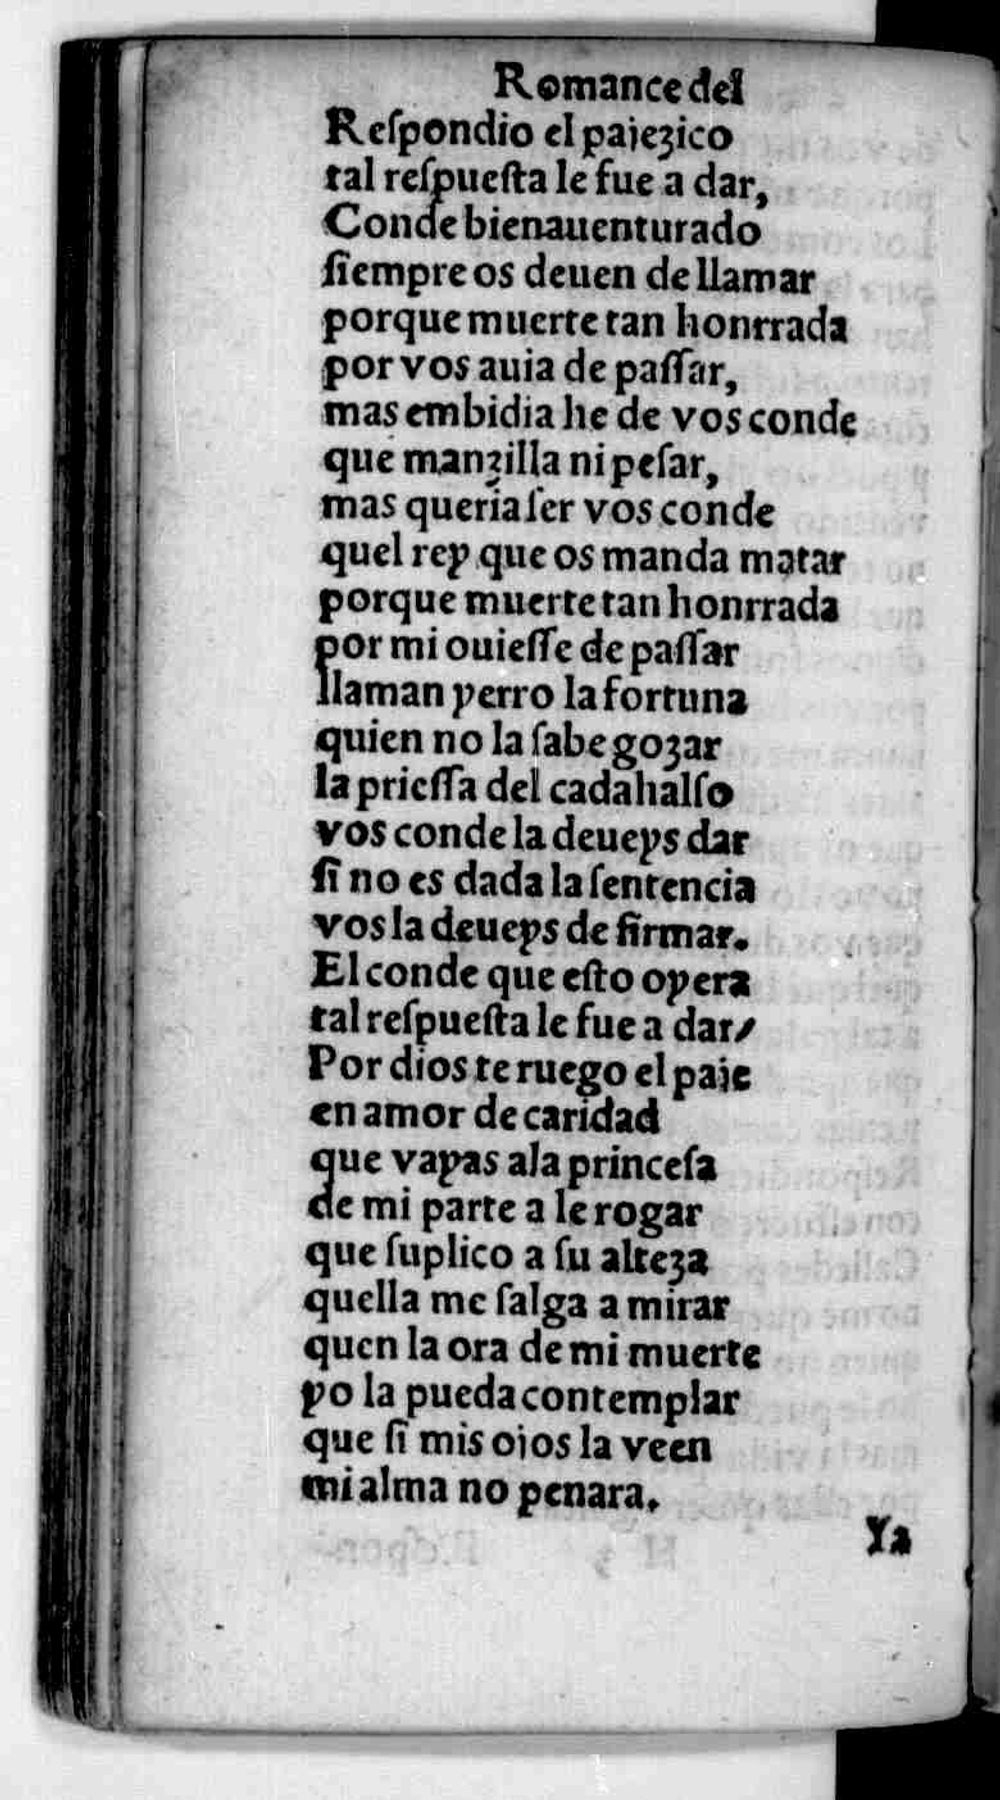 Romance del
Reſpondio el pajezico
tal reſpueſta le fue a dar,
Conde bienauenturado
ſiempre os deuen de llamar
porque muerte tan honrrada
por vos auia de paſſar,
mas embidia he de vos conde
que manzilla ni peſar,
mas queria ſer vos conde
quel rey que os manda matar
porque muerte tan honrrada
por mi ouieſſe de paſſar
llaman yerro la fortuna
quien no la ſabe gozar
la prieſſa del cadahalſo
vos conde la deueys dar
ſi no es dada la ſentencia
vos la deueys de firmar.
El conde que eſto oyera
tal reſpueſta le fue a dar/
Por dios te ruego el paje
en amor de caridad
que vayas ala princeſa
de mi parte a le rogar
que ſuplico a ſu alteza
quella me ſalga a mirar
quen la ora de mi muerte
yo la pueda contemplar
que ſi mis ojos la veen
mi alma no penara.
Ya